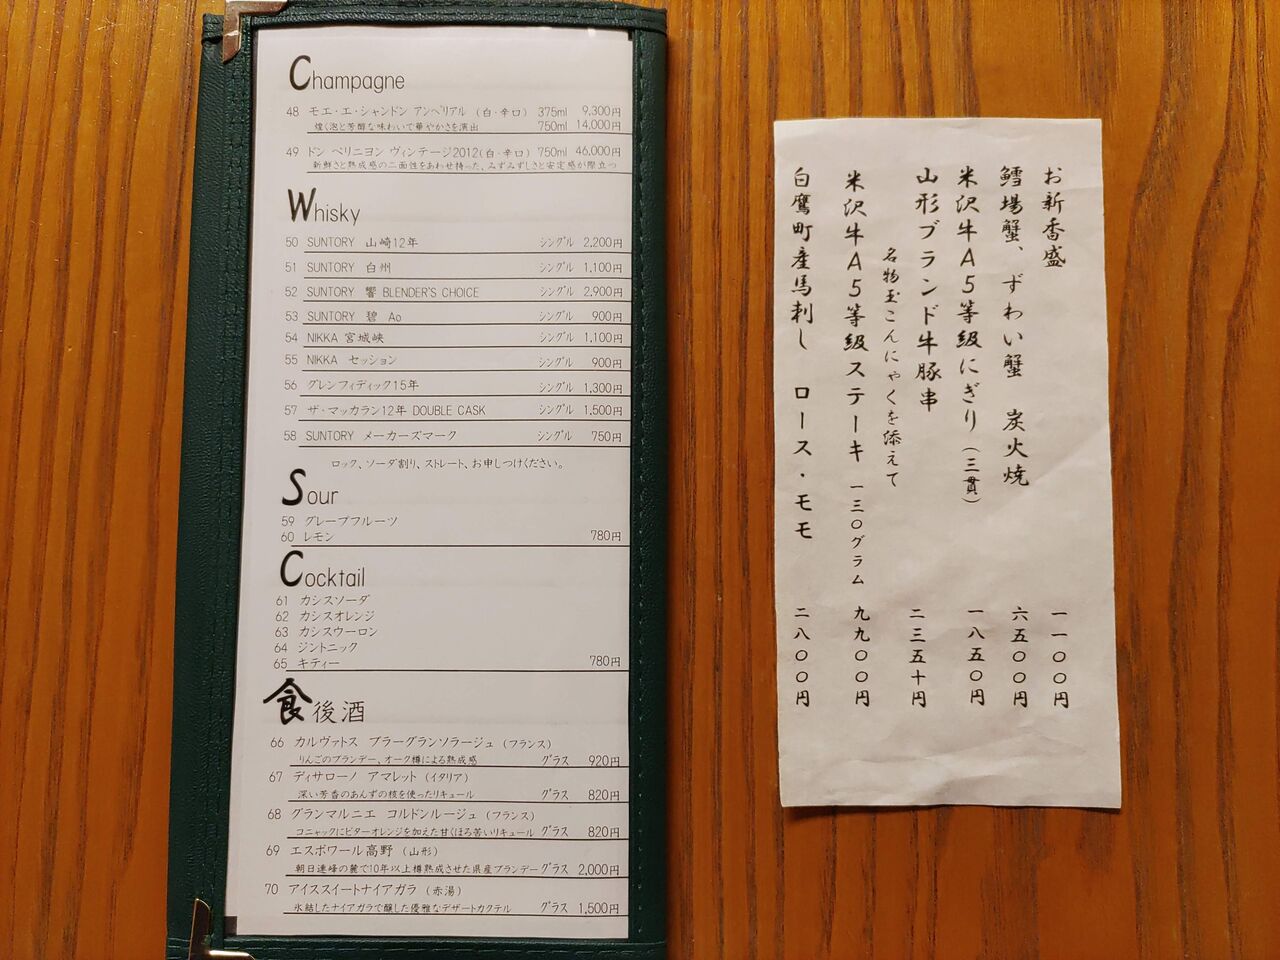 Champagne
48 モエ・エ・シャンドン アンペリアル (白・辛口) 375ml 9,300円
煌く泡と芳醇な味わいで華やかさを演出 750ml 14,000円
49 ドン ペリニヨン ヴィンテージ2012(白・辛口) 750ml 46,000円
新鮮さと熟成感の二面性をあわせ持った、みずみずしさと安定感が際立つ
Whisky
50 SUNTORY 山崎12年 シングル 2,200円
51 SUNTORY 白州 シングル 1,100円
52 SUNTORY 響 BLENDER'S CHOICE シングル 2,900円
53 SUNTORY 碧 Ao シングル 900円
54 NIKKA 宮城峡 シングル 1,100円
55 NIKKA セッション シングル 900円
56 グレンフィディック15年 シングル 1,300円
57 ザ・マッカラン12年 DOUBLE CASK シングル 1,500円
58 SUNTORY メーカーズマーク シングル 750円
ロック、ソーダ割り、ストレート、お申しつけください。
Sour
59 グレープフルーツ
60 レモン 780円
Cocktail
61 カシスソーダ
62 カシスオレンジ
63 カシスウーロン
64 ジントニック
65 キティー 780円
食後酒
66 カルヴァトス ブラーグランソラージュ (フランス)
りんごのブランデー、オーク樽による熟成感 グラス 920円
67 ディサローノ アマレット (イタリア)
深い芳香のあんずの核を使ったリキュール グラス 820円
68 グランマルニエ コルドンルージュ (フランス)
コニャックにビターオレンジを加えた甘くほろ苦いリキュール グラス 820円
69 エスポワール高野 (山形)
朝日連峰の麓で10年以上樽熟成させた県産ブランデー グラス 2,000円
70 アイススイートナイアガラ (赤湯)
氷結したナイアガラで醸した優雅なデザートカクテル グラス 1,500円
お新香盛 一一〇〇円
鱈場蟹、ずわい蟹 炭火焼 六五〇〇円
米沢牛A5等級にぎり(三貫) 一八五〇円
山形ブランド牛豚串 二三五十円
名物玉こんにゃくを添えて
米沢牛A5等級ステーキ 一三〇グラム 九九〇〇円
白鷹町産馬刺し ロース・モモ 二八〇〇円